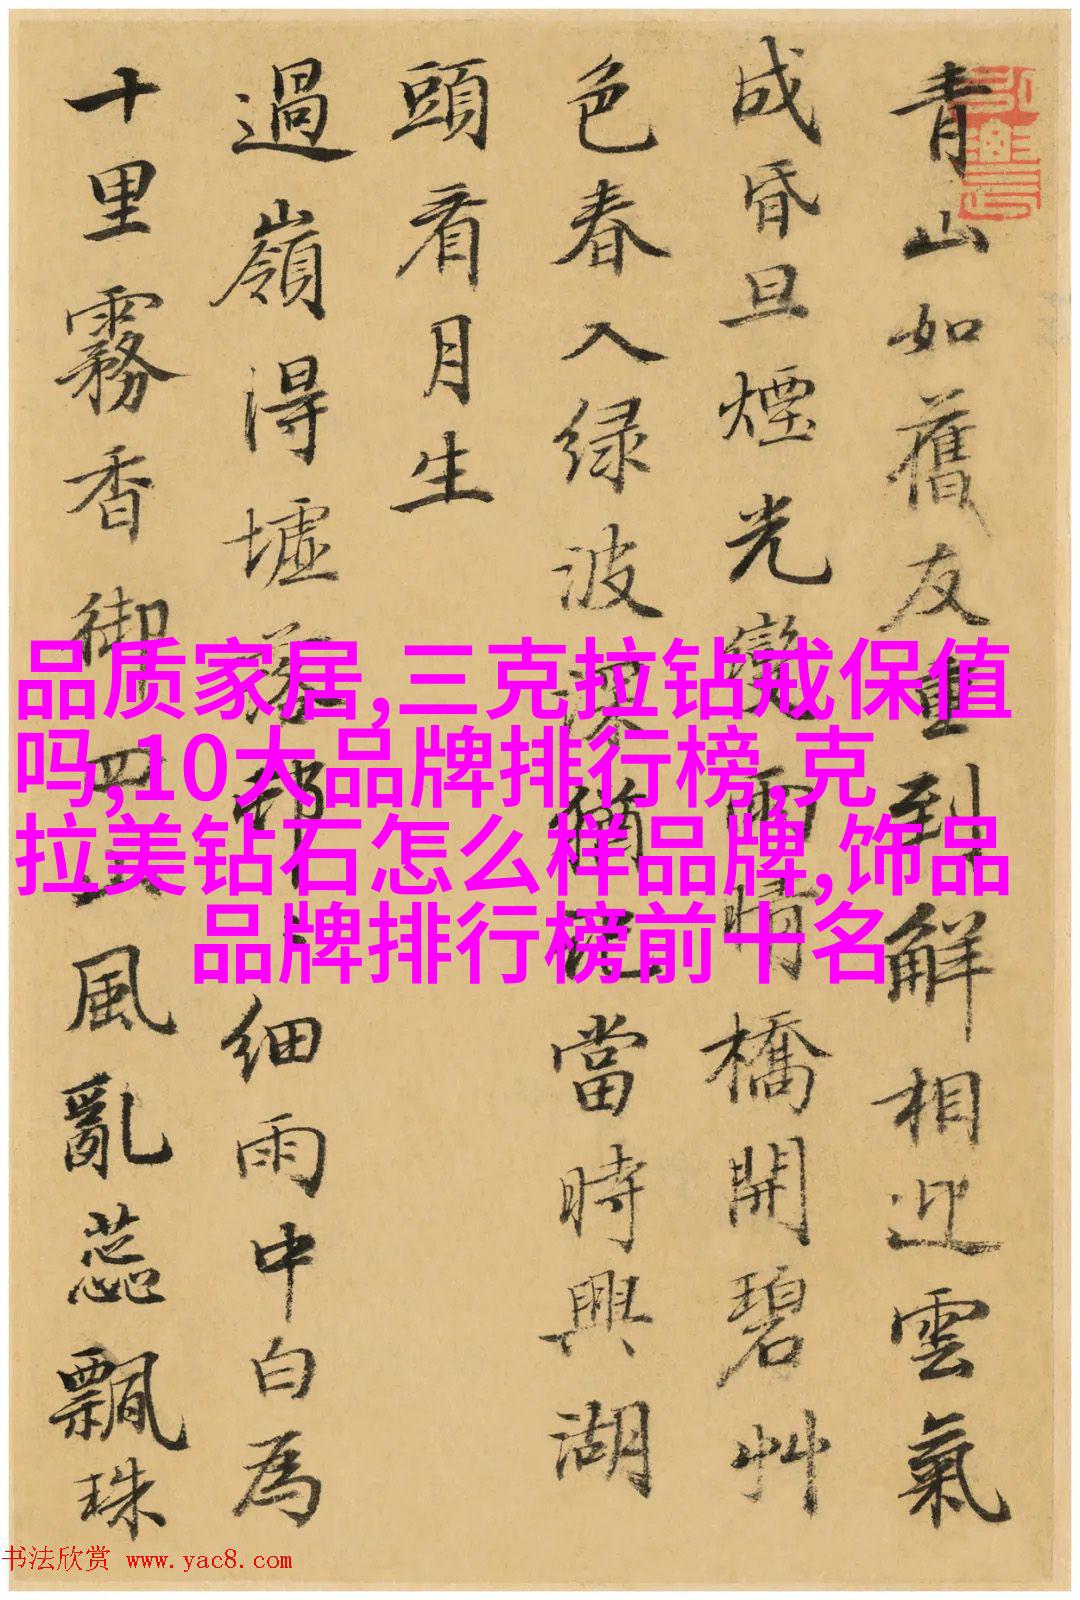 青山如舊友重到解相迎雲氣
成昏旦煙光變雨晴橋開碧艸
色春入绿波深猶當時興湖
頭看月生
過嶺得墟落邨細雨中白為
十里霧香御四山風亂蕊飄珠
品质家居,三克拉钻戒保值
吗,10大品牌排行榜,克
拉美钻石怎么样品牌,饰品
品牌排行榜前十名
书法欣赏 www.yac8.com